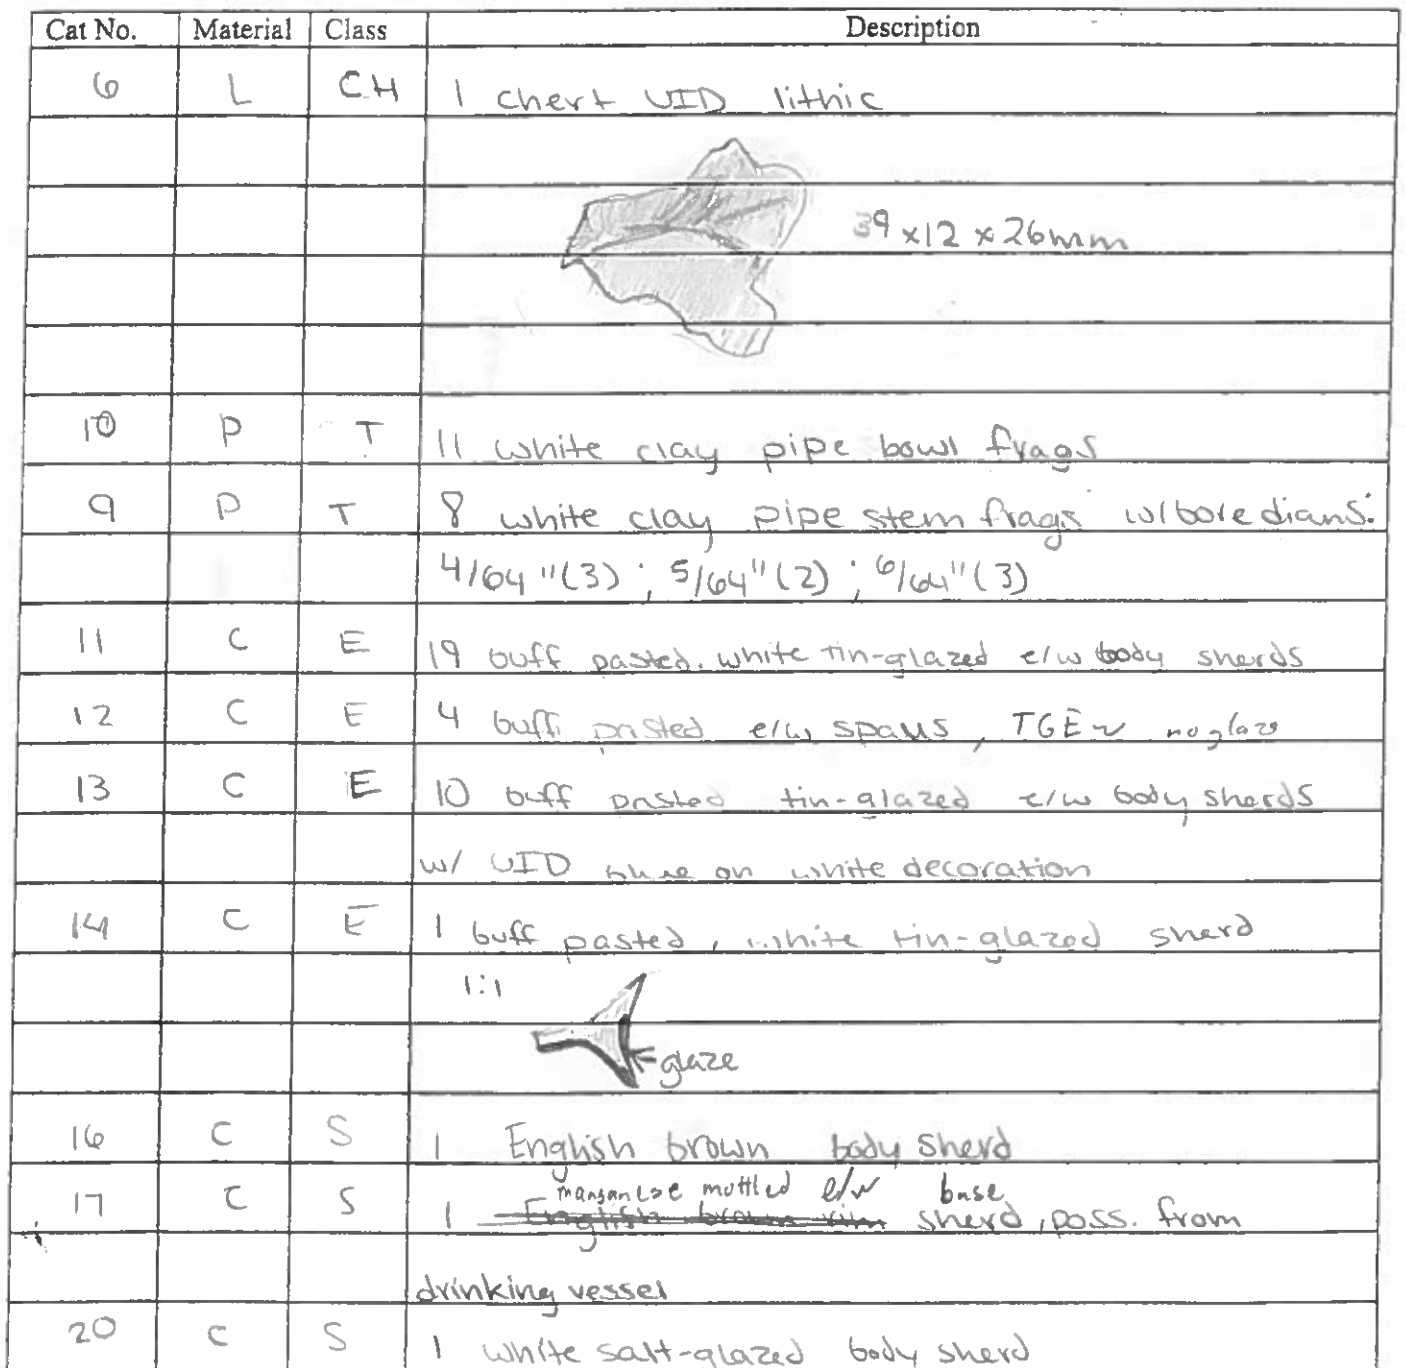 Cat No. Material Class Description
6 L CH 1 chert UID lithic
39 x 12 x 26mm
10 P T 11 white clay pipe bowl frags
9 P T 8 white clay pipe stem frags w/bore diams:
4/64"(3) ; 5/64"(2) ; 6/64"(3)
11 C E 19 buff pasted, white tin-glazed e/w body sherds
12 C E 4 buff pasted e/w spalls, TGE no glaze
13 C E 10 buff pasted tin-glazed e/w body sherds
w/ UID blue on white decoration
14 C E 1 buff pasted, white tin-glazed sherd
1:1
glaze
16 C S 1 English brown body sherd
manganese mottled e/w base
17 C S 1 English brown rim sherd, poss. from
drinking vessel
20 C S 1 white salt-glazed body sherd